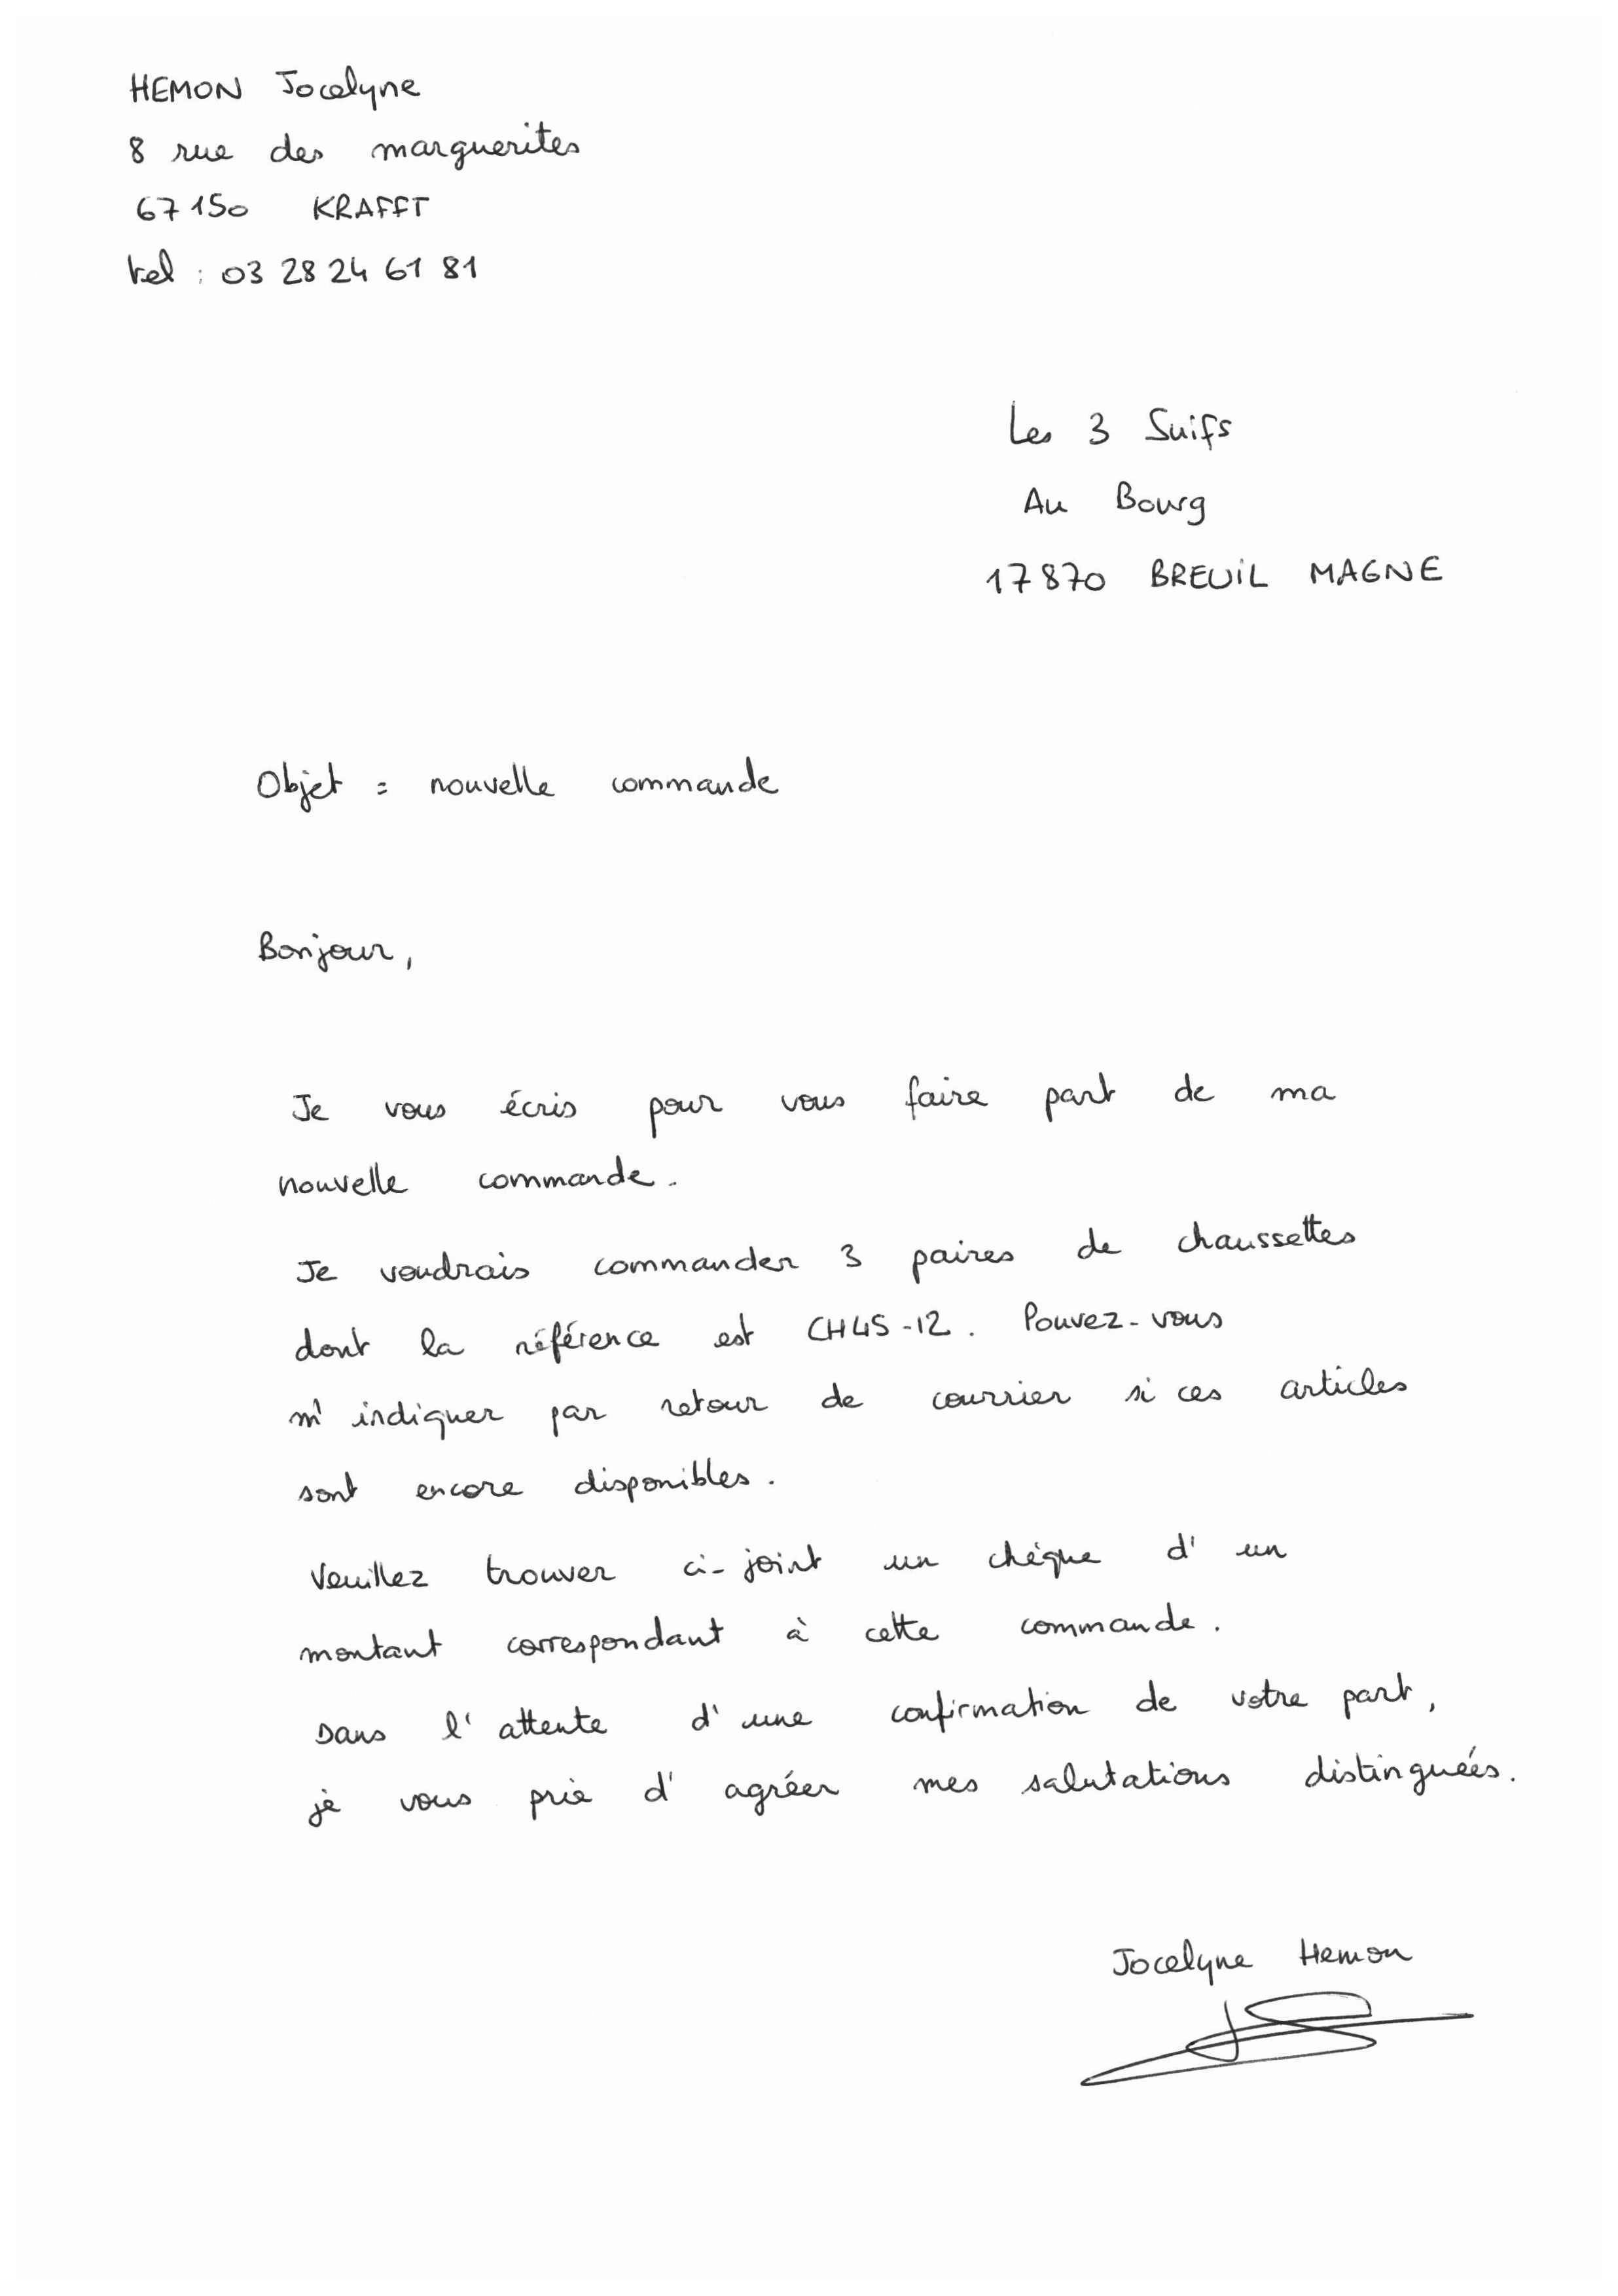 HEMON Jocelyne
8 rue des marguerites
67150 KRAFFT
tel : 03 28 24 61 81
Les 3 Suifs
Au Bourg
17870 BREUIL MAGNE
Objet : nouvelle commande
Bonjour,
Je vous écris pour vous faire part de ma
nouvelle commande.
Je voudrais commander 3 paires de chaussettes
dont la référence est CH45-12. Pouvez-vous
m'indiquer par retour de courrier si ces articles
sont encore disponibles.
Veuillez trouver ci-joint un chèque d'un
montant correspondant à cette commande.
Dans l'attente d'une confirmation de votre part,
je vous prie d'agréer mes salutations distinguées.
Jocelyne Hemon